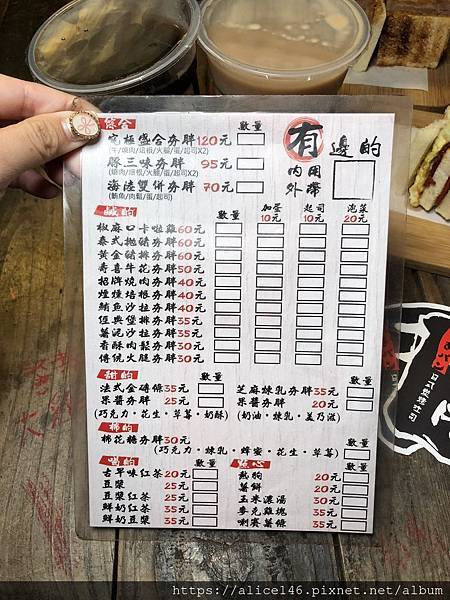 綜合 數量
究極盛合夯胖120元
(牛/燒肉/培根/火腿/蛋/起司X2)
豚三味夯胖 95元
(燒肉/培根/火腿/蛋/起司X2)
海陸雙併夯胖 70元
(鮪魚/肉鬆/蛋/起司)
有 邊的
內用
外帶
鹹的 數量 加蛋 10元 起司 10元 泡菜 20元
椒麻口卡啦雞60元
泰式拋豬夯胖60元
黃金豬排夯胖60元
壽喜牛花夯胖50元
招牌燒肉夯胖40元
煙燻培根夯胖40元
鮪魚沙拉夯胖40元
經典堡排夯胖35元
薯泥沙拉夯胖35元
香酥肉鬆夯胖30元
傳統火腿夯胖30元
甜的 數量 數量
法式金磚條35元
果醬夯胖 25元
(巧克力・花生・草莓・奶酥)
芝麻煉乳夯胖35元
果醬夯胖 20元
(奶油・煉乳・美乃滋)
棉的
棉花糖夯胖30元
(巧克力・煉乳・蜂蜜・花生・草莓)
喝的 數量
古早味紅茶20元
豆漿 25元
豆漿紅茶 25元
鮮奶紅茶 35元
鮮奶豆漿 35元
點心 數量
熱狗 20元
薯餅 20元
玉米濃湯 30元
麥克雞塊 35元
唰賽薯條 35元
https://alice146.pixnet.net/album